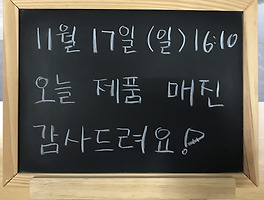 11월 17일 (일) 16:10
오늘 제품 매진
감사드려요!